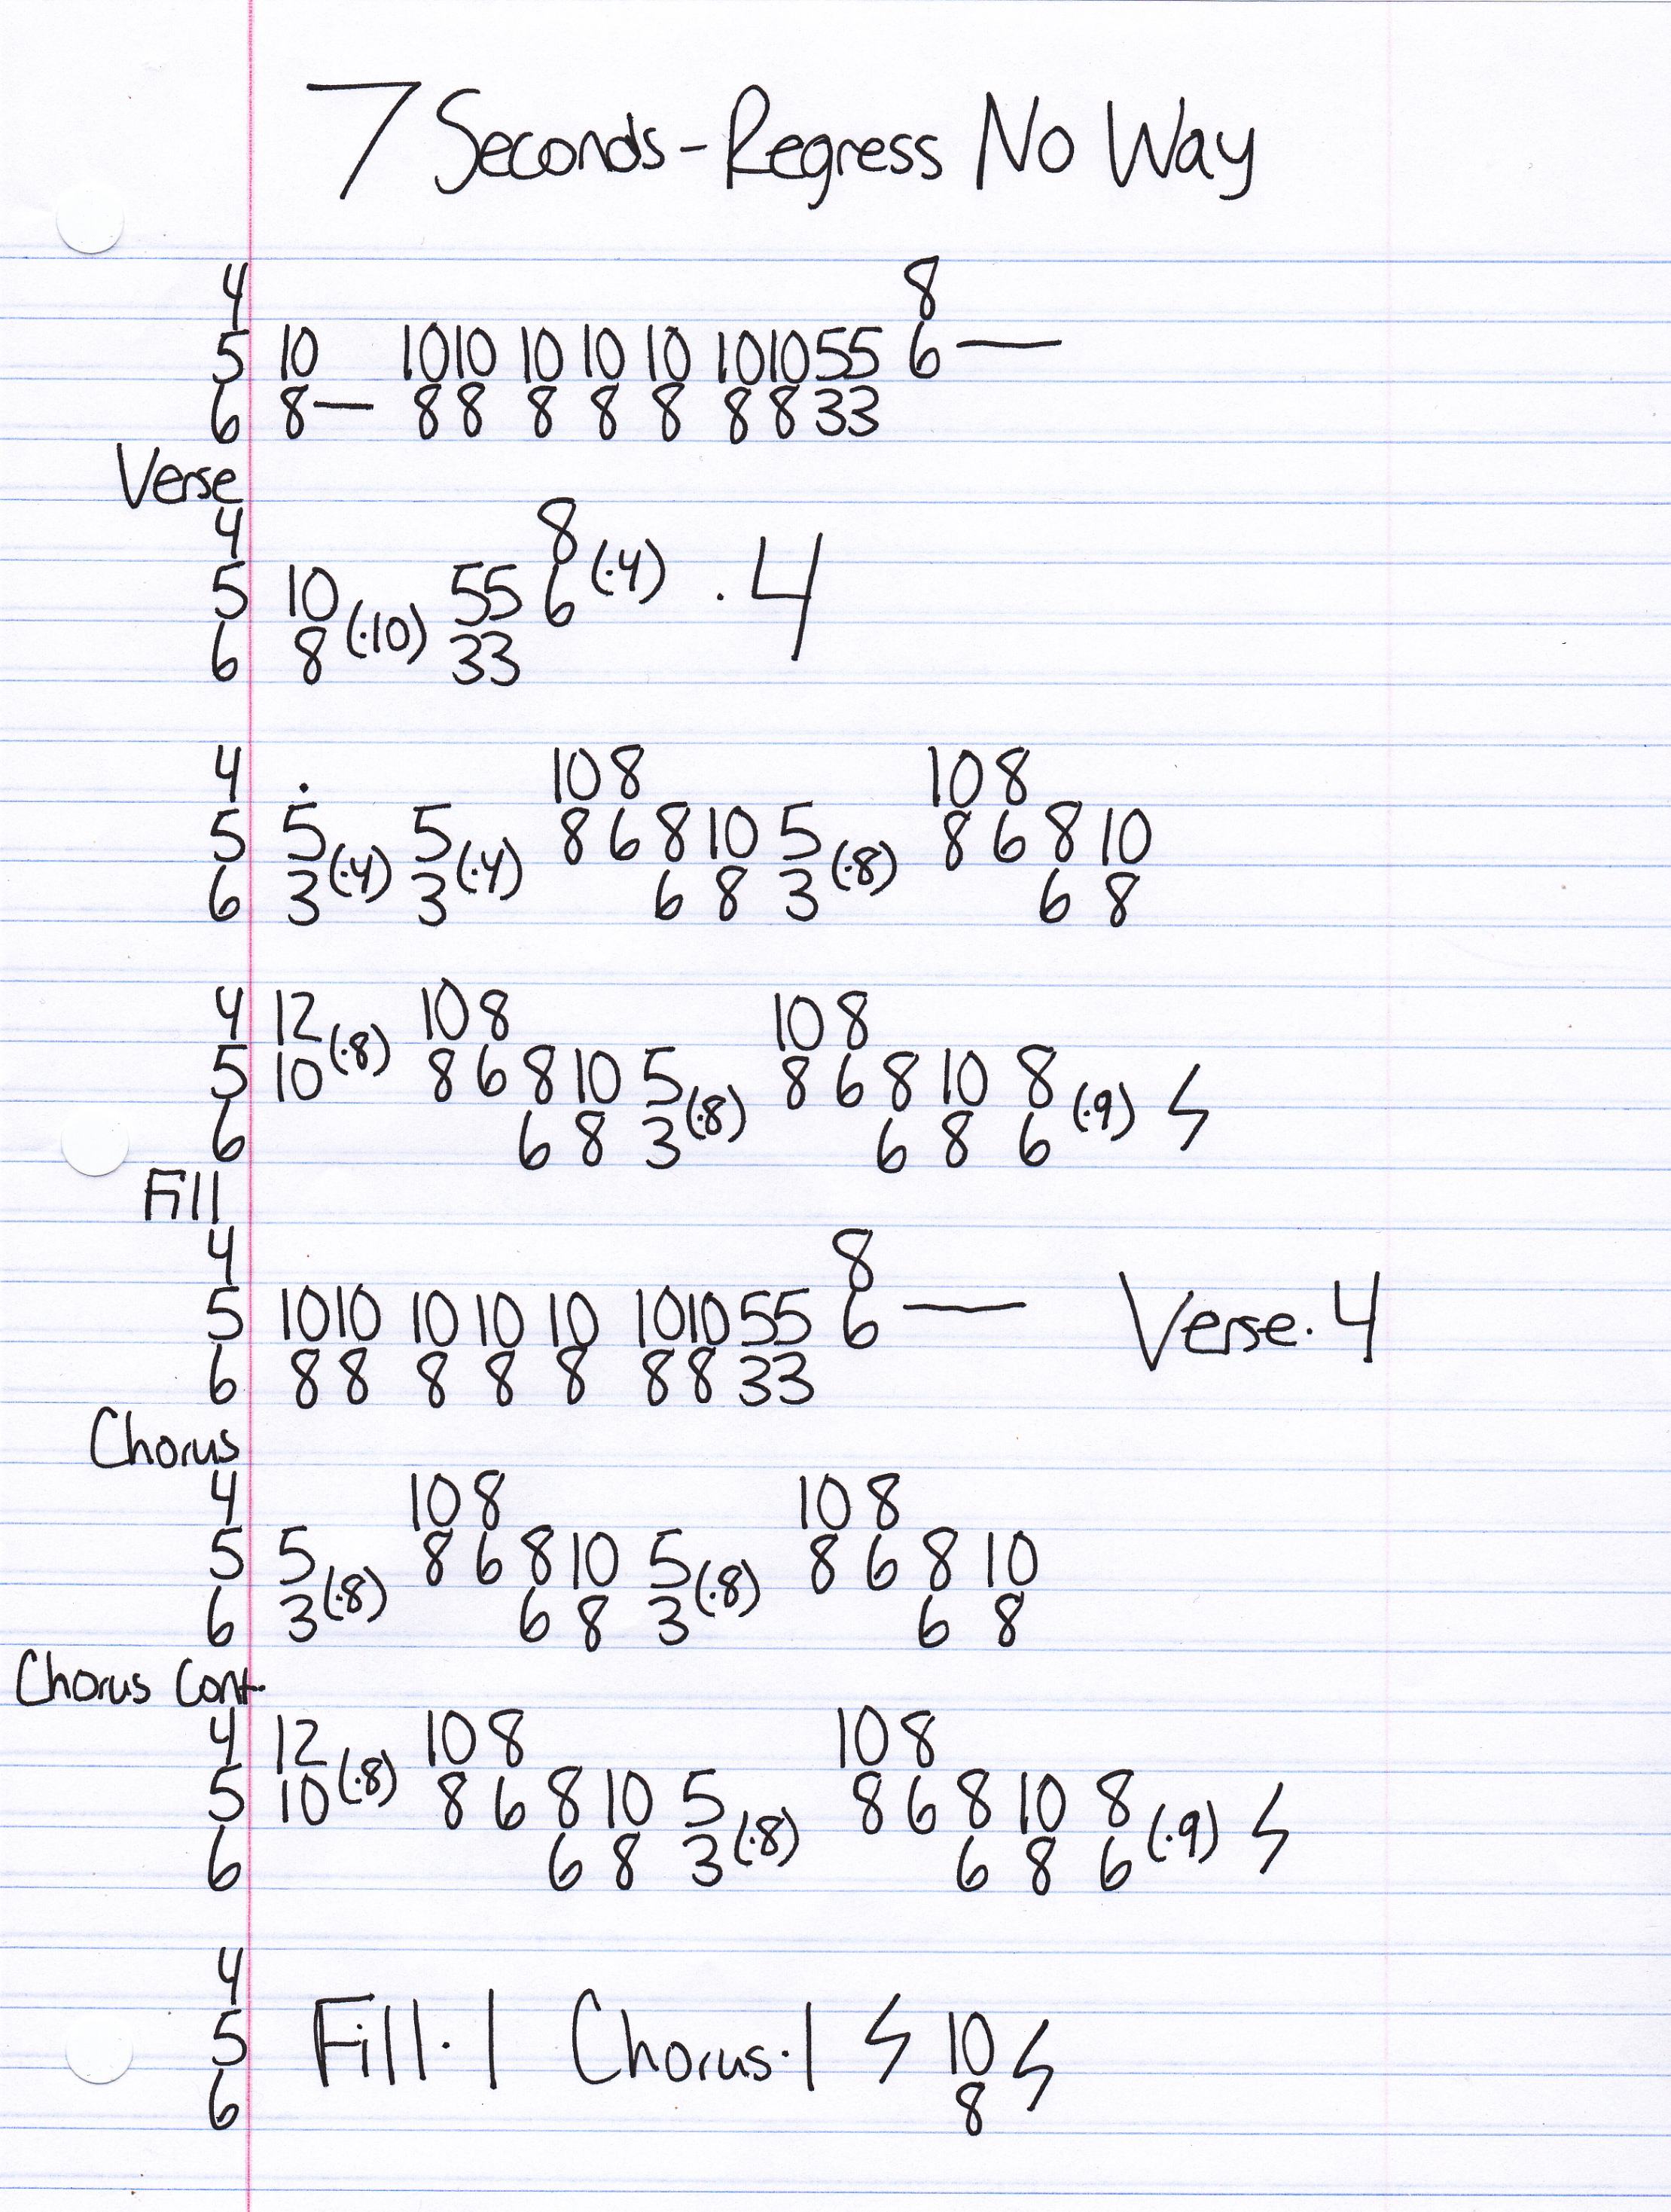 7 Seconds - Regress No Way
4 8
5 10 10 10 10 10 10 10 10 5 5 6 —
6 8 — 8 8 8 8 8 8 8 3 3
Verse
4 8
5 10 5 5 6 (·4) · 4
6 8 (·10) 3 3
4 · 10 8 10 8
5 5 5 8 6 8 10 5 8 6 8 10
6 3 (·4) 3 (·4) 6 8 3 (·8) 6 8
4 12 10 8 10 8
5 10 (·8) 8 6 8 10 5 8 6 8 10 8
6 6 8 3 (·8) 6 8 6 (·9) ϟ
Fill
4 8
5 10 10 10 10 10 10 10 5 5 6 — Verse · 4
6 8 8 8 8 8 8 8 3 3
Chorus
4 10 8 10 8
5 5 8 6 8 10 5 8 6 8 10
6 3 (·8) 6 8 3 (·8) 6 8
Chorus Cont.
4 12 10 8 10 8
5 10 (·8) 8 6 8 10 5 8 6 8 10 8
6 6 8 3 (·8) 6 8 6 (·9) ϟ
4
5 Fill · 1 Chorus · 1 ϟ 10 ϟ
6 8